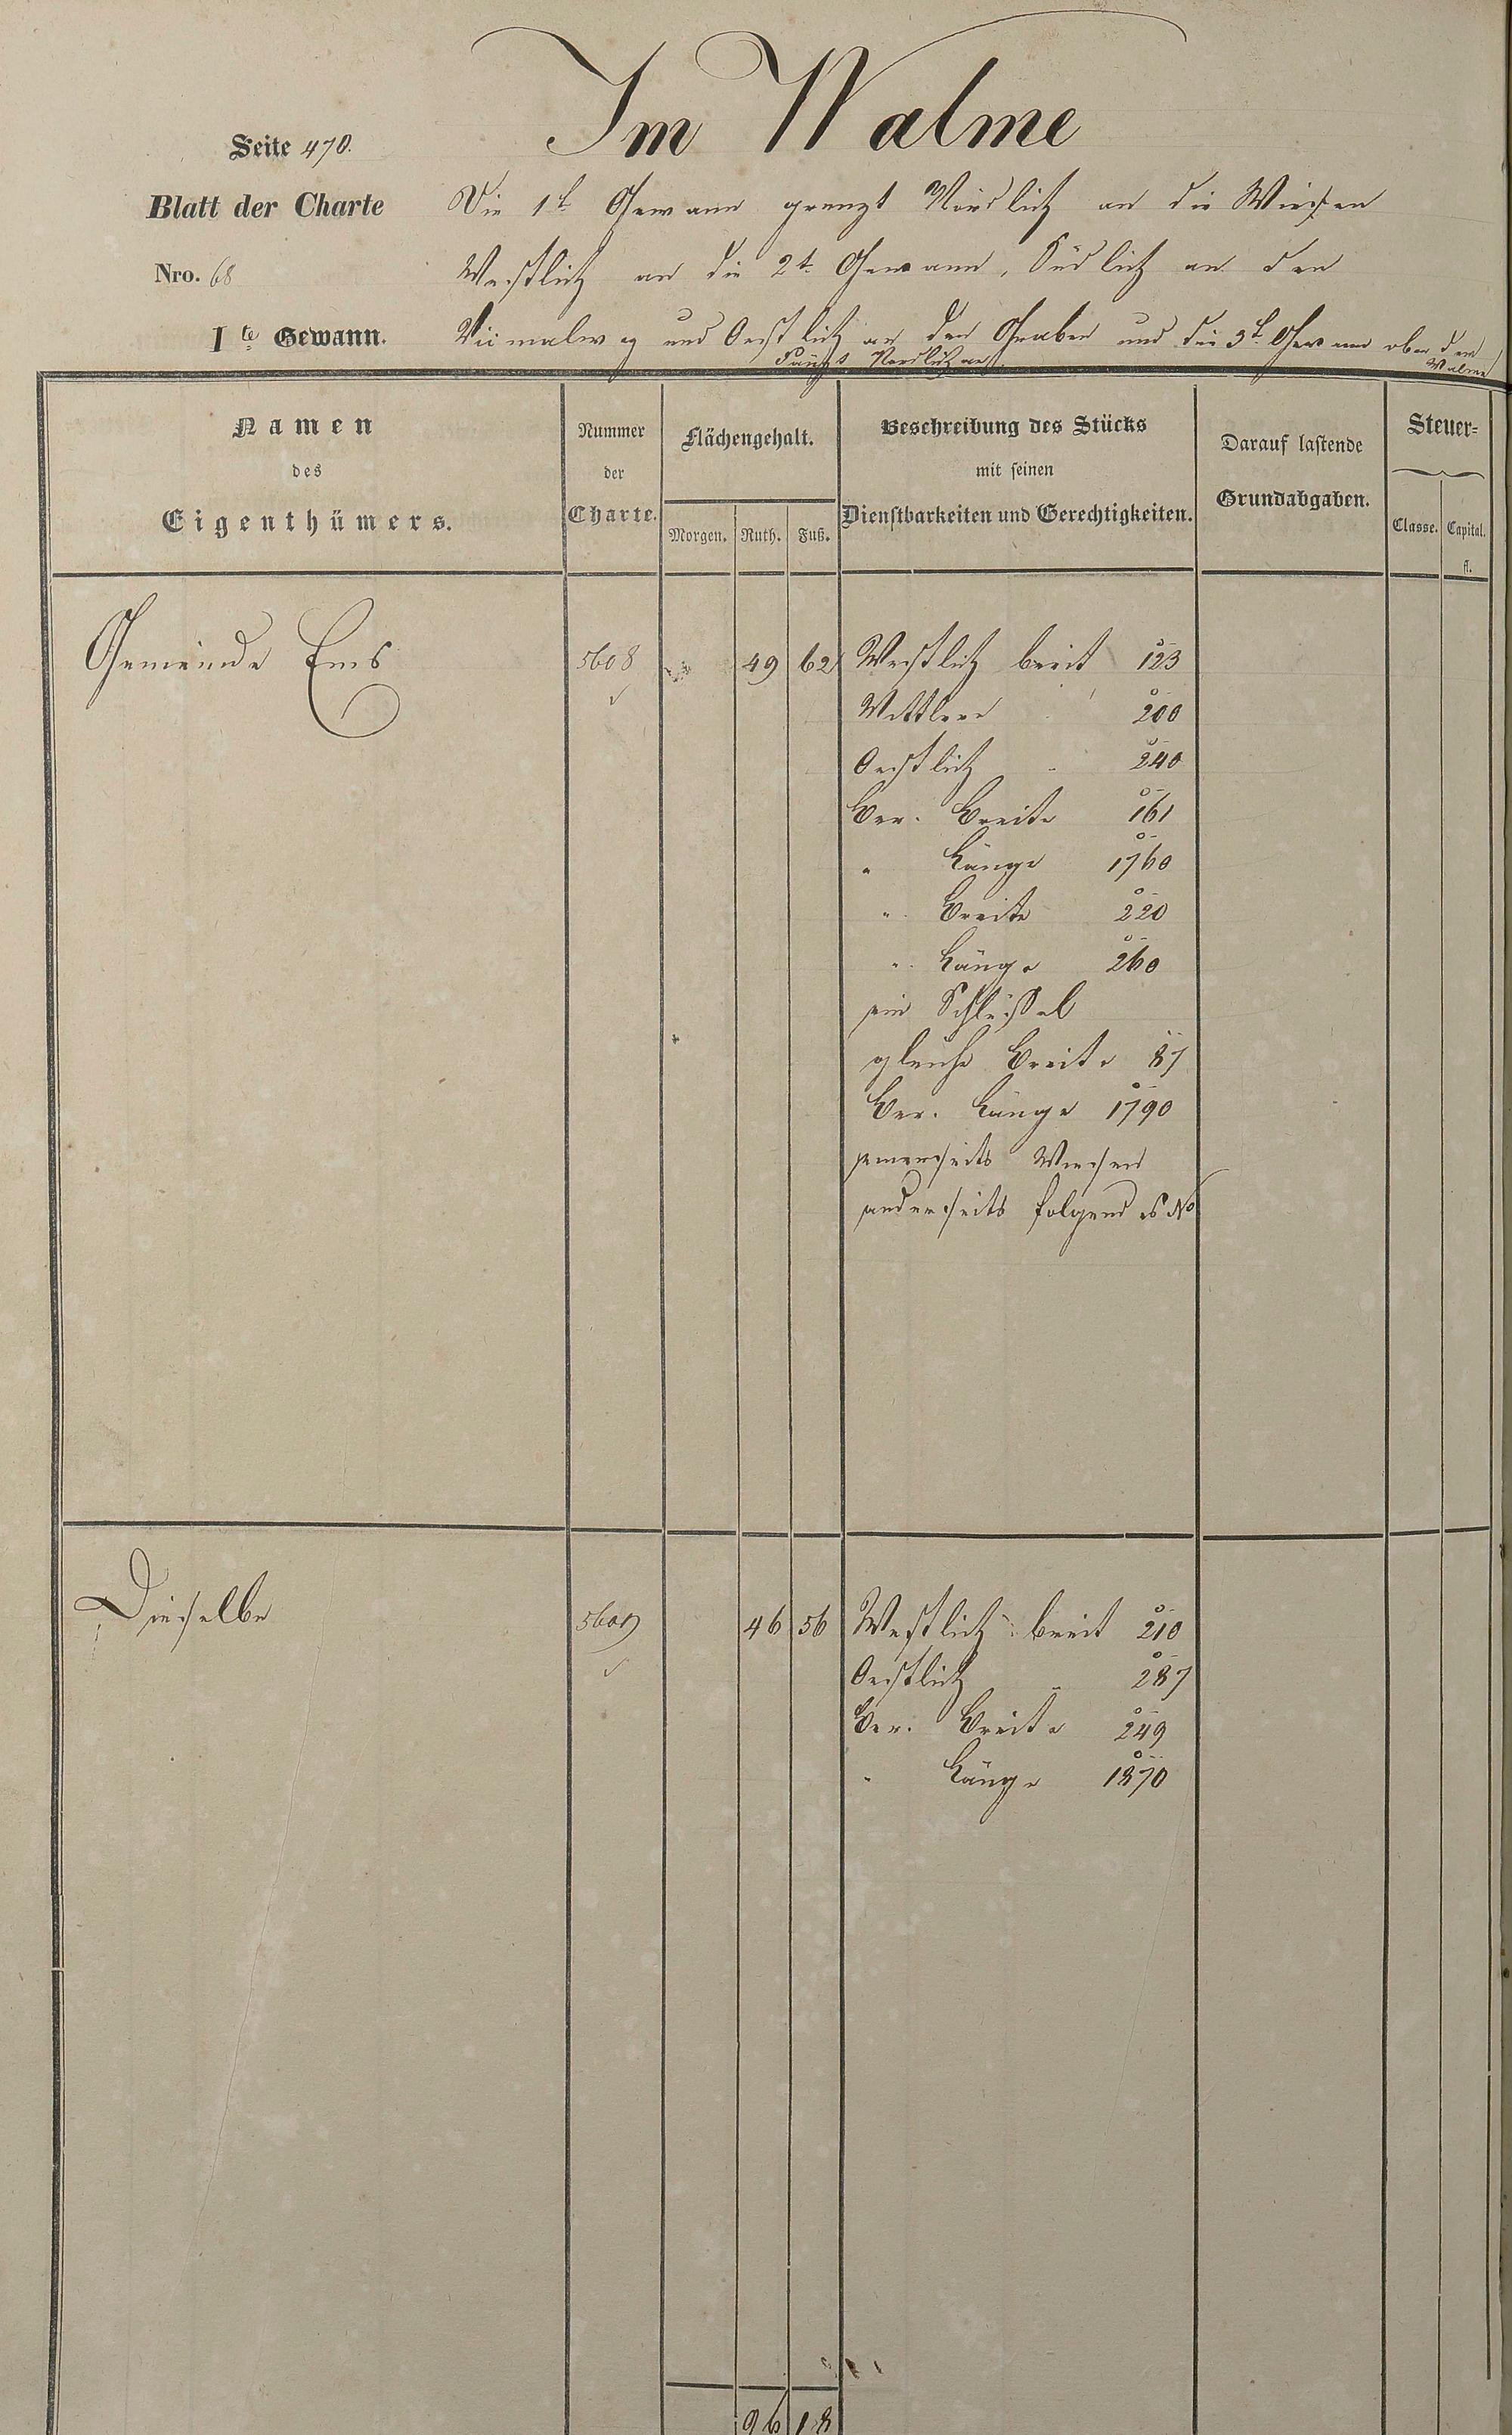 Im Walme
Seite 470.
Blatt der Charte
Nro. 68
Ite Gewann.
Die 1t Gewann grenzt Nördlich an die Wiesen
Westlich an die 2t Gewann, Südlich an den
und Oestlich an den Graben und die 3t Gewann ober dem
Walme
Fängt Nördlich an.
Namen
des
Eigenthümers.
Nummer
der
Charte.
Flächengehalt.
Morgen. Ruth. Fuß.
Beschreibung des Stücks
mit seinen
Dienstbarkeiten und Gerechtigkeiten.
Darauf lastende
Grundabgaben.
Steuer=
Classe. Capital.
fl.
Gemeinde Ems 5608 49 62 Westlich breit 123
Mittlere 200
Oestlich " 240
Ber. Breite 161
" Länge 1760
" Breite 220
" Länge 260
ein Schlüssel
gleiche Breite 87
Ber. Länge 1790
einerseits Wiesen
anderseits folgendes No
Dieselbe 5609 46 56 Westlich breit 210
Oestlich " 287
Ber. Breite 249
" Länge 1870
96 18